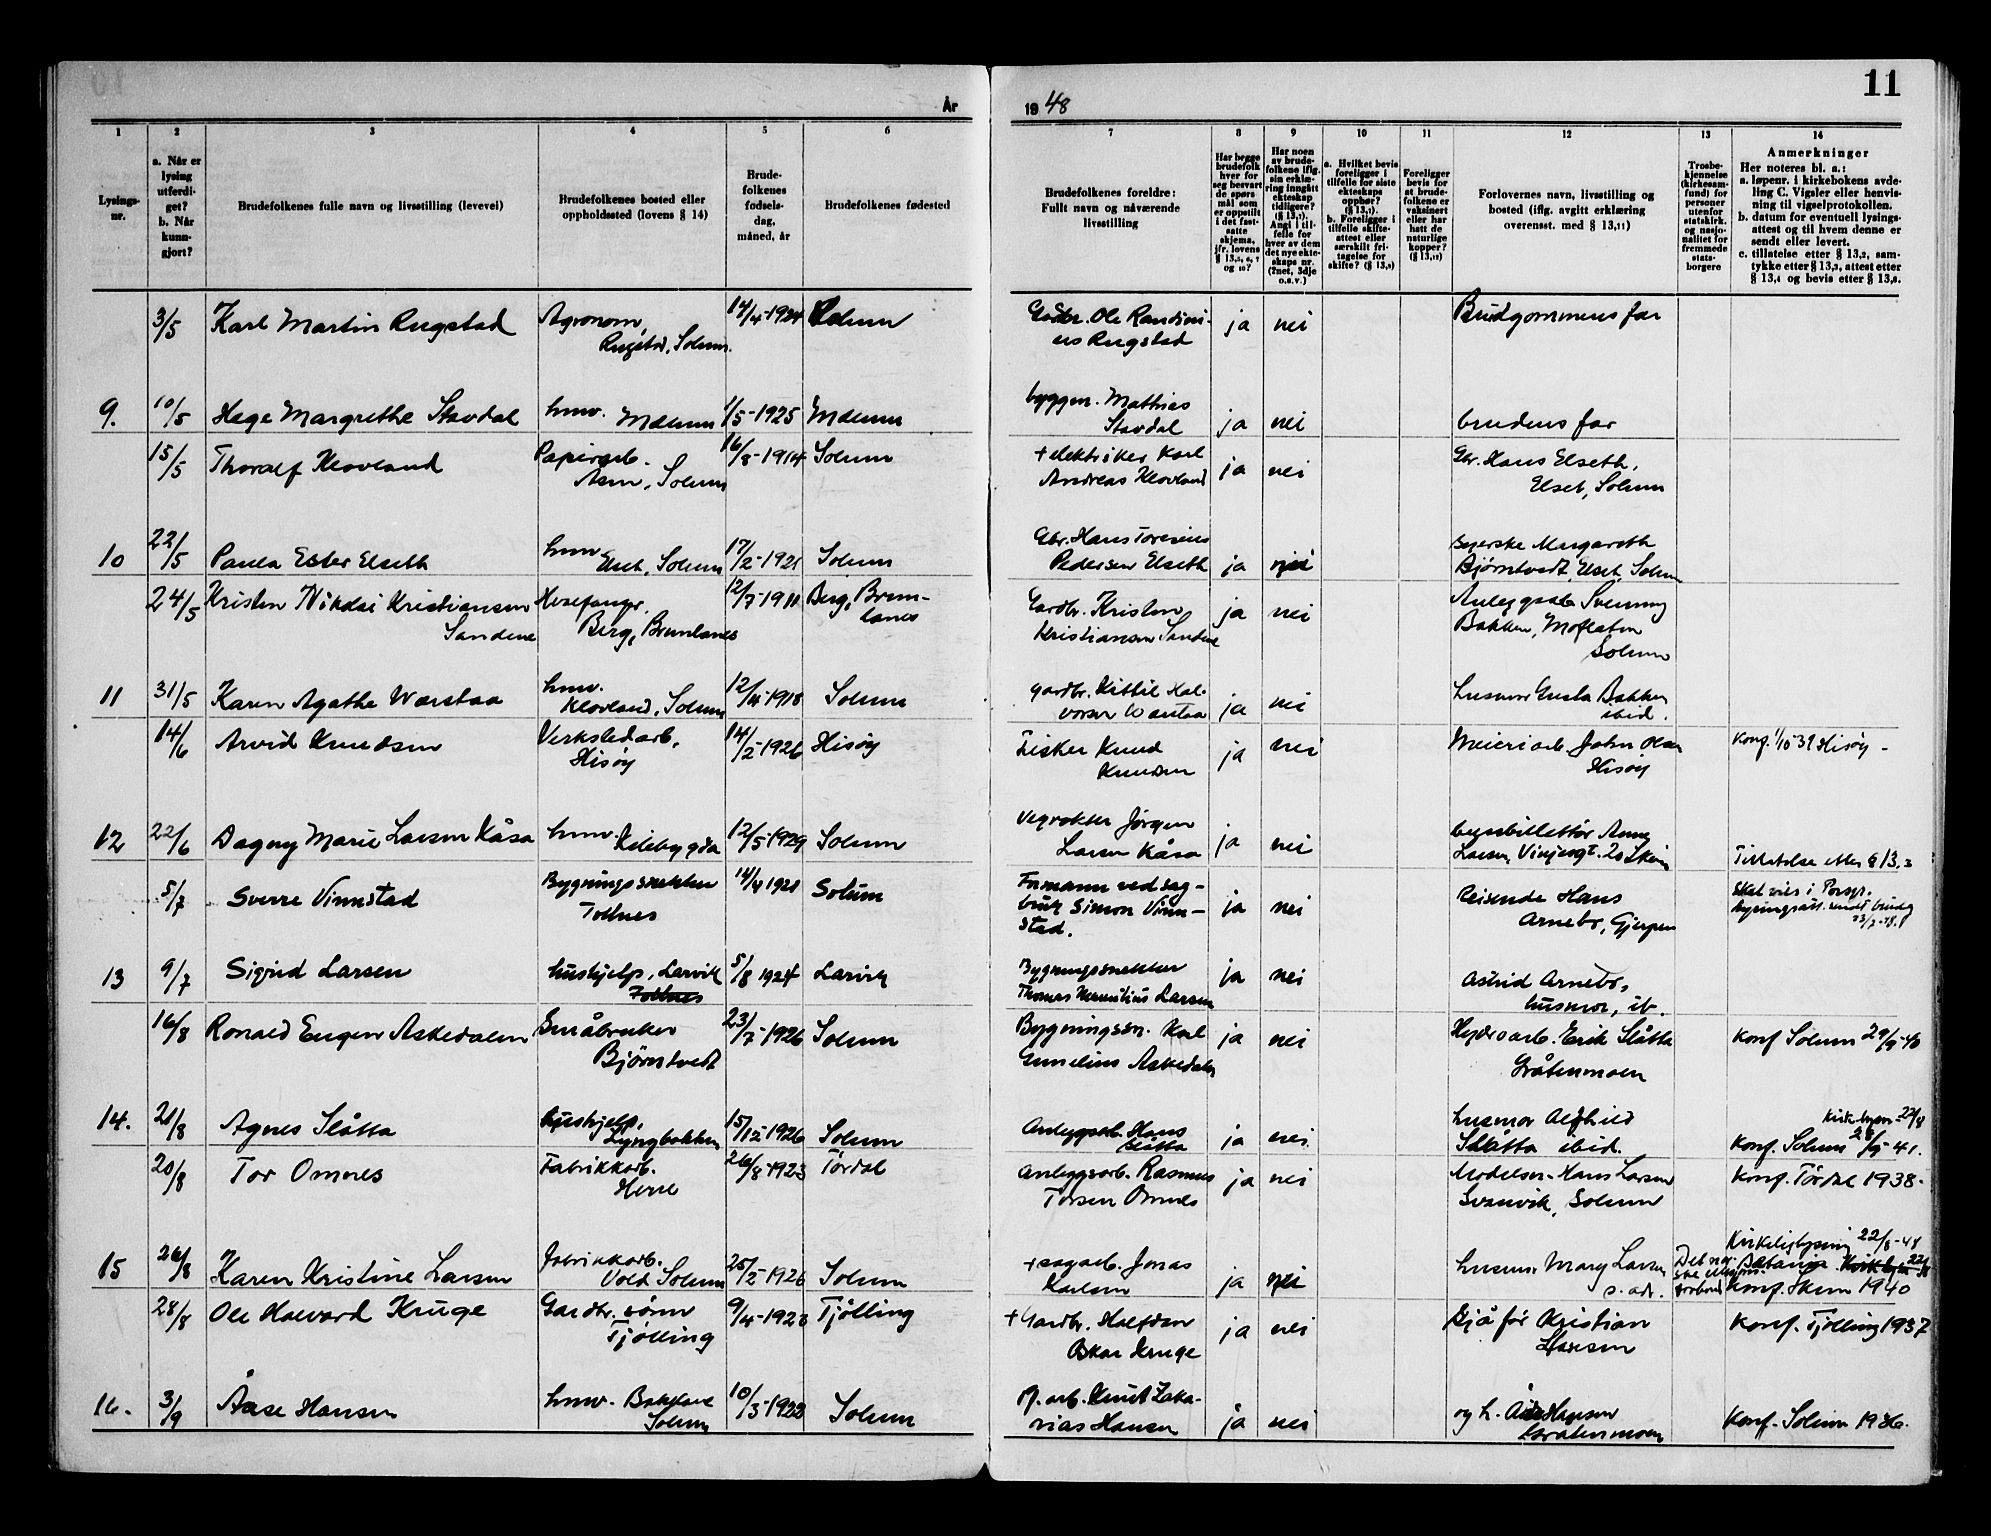 11
År
19 48
1
2
3
4
5
6
7
8
9
10
11
12
13
14
Lysings-
nr.
a. Når er
lysing
utferdi-
get?
b. Når
kunn-
gjort?
Brudefolkenes fulle navn og livsstilling (levevei)
Brudefolkenes bosted eller
oppholdssted (lovens § 14)
Brude-
folkenes
fødsels-
dag,
måned, år
Brudefolkenes fødested
Brudefolkenes foreldre:
Fullt navn og nåværende
livsstilling
Har begge
brudefolk
hver for
seg besvart
de spørs-
mål som
er oppstilt
i det fast-
satte
skjema,
jfr. lovens
§ 13,5, 6, 7
og 10?
Har noen
av brude-
folkene iflg.
sin erklæ-
ring inngått
ekteskap
tidligere?
(§ 13,1).
Angi i til-
felle for
hver av dem
det nye ekte-
skaps nr.
(2net, 3dje
o.s.v.)
a. Hvilket bevis
foreligger i
tilfelle for siste
ekteskaps
opphør?
(§ 13,1).
b. Foreligger i
tilfelle skifte-
attest eller
særskilt fri-
tagelse for
skifte? (§ 13,9)
Foreligger
bevis for
at brude-
folkene er
vaksinert
eller har
hatt de
naturlige
kopper?
(§ 13,12)
Forlovernes navn, livsstilling og
bosted (iflg. avgitt erklæring
overensst. med § 13,11)
Trosbe-
kjennelse
(kirkesam-
fund) for
personer
utenfor
statskirk.
og nasjo-
nalitet for
fremmede
stats-
borgere
Anmerkninger
Her noteres bl. a.:
a. løpenr. i kirkebokens avde-
ling C. Vigsler eller henvis-
ning til vigselprotokollen.
b. datum for eventuell lysings-
attest og til hvem denne er
sendt eller levert.
c. tillatelse etter § 13,2, sam-
tykke etter § 13,3, attest etter
§ 13,4 og bevis etter § 13,8.
3/5 Karl Martin Rugstad Agronom, 14/4-1924 Solum Ole ja nei Brudgommens far
Rugstad, Solum. Rugstad
9. 10/5 Hege Margrethe Stavdal hmv. Mælum 1/5-1925 Mælum byggm. Mathias ja nei brudens far
Stavdal
15/5 Thoralf Klovland Papirarb. 16/8-1914 Solum + elektriker Karl ja nei Gbr. Hans Elseth,
Solum Andreas Klovland Elset, Solum
10 22/5 Paula Ester Elseth hmv 17/2-1921 Solum Gbr. Hans ja nei syerske Margareth
Elset, Solum Pedersen Elseth Bjørntvedt, Elset, Solum
24/5 Kristen Nikolai Kristiansen 12/7-1911 Berg, Brun- Gardbr. Kristen ja nei Anleggsarb. Svenning
Sandene Berg, Brunlanes lanes Kristiansen Sandene Bakken, Moflaten
Solum
11 31/5 Karen Agathe Warstaa hmv. 12/4-1918 Solum gardbr. Kittil Hal- ja nei husmor Bakken
Klovland, Solum vorsen Warstaa ibid.
14/6 Arvid Knudsen Verkstedarb. 14/2-1926 Hisøy Fisker Knud ja nei Meieriarb. John Olsen Konf. 1/10 39 Hisøy -
Hisøy Knudsen Hisøy
12 22/6 Dagny Marie Larsen Kåsa hmv. Kilebygda 12/5-1929 Solum Vegvokter Jørgen ja nei bussbillettør Anne
Larsen Kåsa Larsen, Vinjesgt. 20 Skien Tillatelse etter § 13.3
5/7 Sverre Vinnstad Bygningssnekker 14/4 1921 Solum Formann ved sag- ja nei Reisende Hans Skal vies i Porsgr.
Tollnes bruk Simon Vinn- Arnebo, Gjerpen lysningsatt. sendt
stad. 23/7-48.
13 9/7 Sigrid Larsen hushjelp, Larvik 5/8 1924 Larvik Bygningssnekker ja nei Astrid Arnebo,
Tollnes Thomas Larsen husmor, ib.
16/8 Ronald Eugen Askedalen Småbruker 23/7-1926 Solum Bygningssn. Karl ja nei Hydroarb. Erik Slåtta Konf Solum 29/9-40
Bjørntvedt Askedalen Gråtenmoen
14. 21/8 Agnes Slåtta hushjelp, 15/12-1926 Solum Anleggsarb. Hans ja nei. husmor Alfhild Kirkelysn. 22/8
Lyngbakken Slåtta Slåtta ibid. Konf. Solum 28/9-41.
20/8 Tor Omnes Fabrikkarb. 26/8-1923 Tørdal Anleggsarb. Rasmus ja nei Modellsn. Hans Larsen Konf. Tørdal 1938-
Herre Torsen Omnes Svanvik, Solum
15 26/8 Karen Kristine Larsen Fabrikkarb. 25/2-1926 Solum + sagarb. Jonas ja nei husm. Mary Larsen Kirkelig lysning 22/8-48
Vold Solum Karlsen s. adr. Konf. Skien 1940
28/8 Ole Halvard Kruge Gardbr. sønn 9/4-1923 Tjølling + Gardbr. Halfdan ja nei Sjåfør Kristian Konf. Tjølling 1937
Tjølling Oskar Kruge Hansen
16. 3/9 Åase Hansen hmv. Bakkane 10/3-1922 Solum arb. Knut Zaka- ja nei og h. Hansen Konf. Solum 1936.
Solum rias Hansen Gråtenmoen